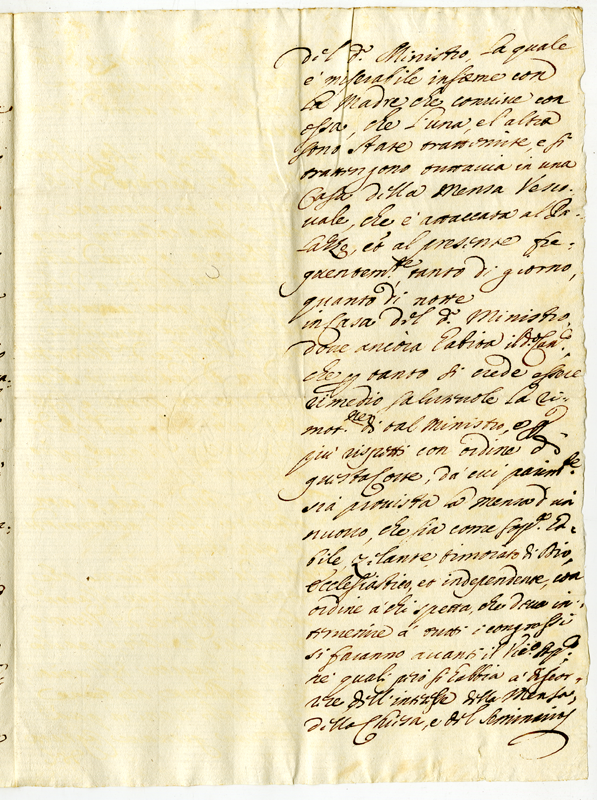 del d.º Ministro, la quale
è miserabile insieme con
la Madre, che convive con
essa, che l'una, e l'altra
sono state trattenute, e si
trattengono tuttavia in una
Casa della Mensa Vesco-
vale, che è attaccata al Pa-
lazzo, et al presente fre-
quentem.te tanto di giorno,
quanto di notte
in Casa del d.º Ministro,
dove ancora habita il d.º Can.º,
che p tanto si crede essere
rimedio salutevole la ri-
mot.ne di tal Ministro, e p
più rispetti con ordine di
questa Corte, da cui parim.te
sia provista la Mensa d'un
nuovo, che sia come sop.ª ha-
bile, zelante, timorato di Dio,
Ecclesiastico, et independente, con
ordine à chi spetta, che deva in-
tervenire à tutti i congressi
si faranno avanti il Vic.º Ap.º
ne' quali però si habbia à discor-
rere dell'interesse della Mensa,
della Chiesa, e del Seminario